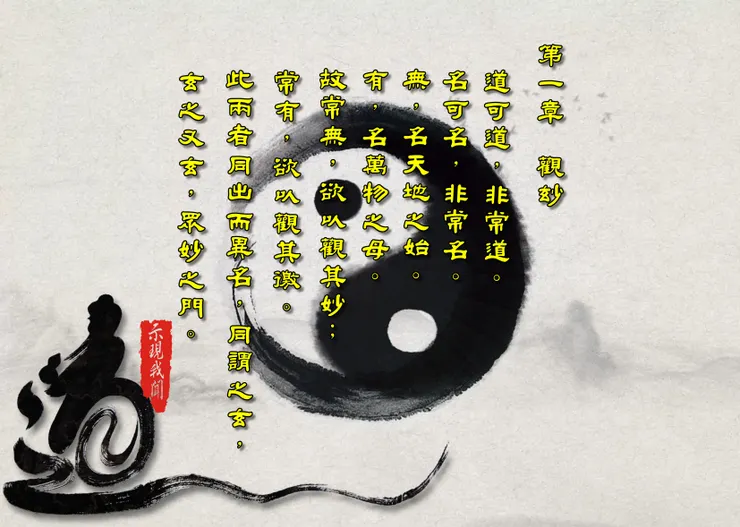 第一章　觀妙
道可道，非常道。
名可名，非常名。
無，名天地之始。
有，名萬物之母。
故常無，欲以觀其妙；
常有，欲以觀其徼。
此兩者同出而異名，同謂之玄，
玄之又玄，眾妙之門。
示現我聞
道